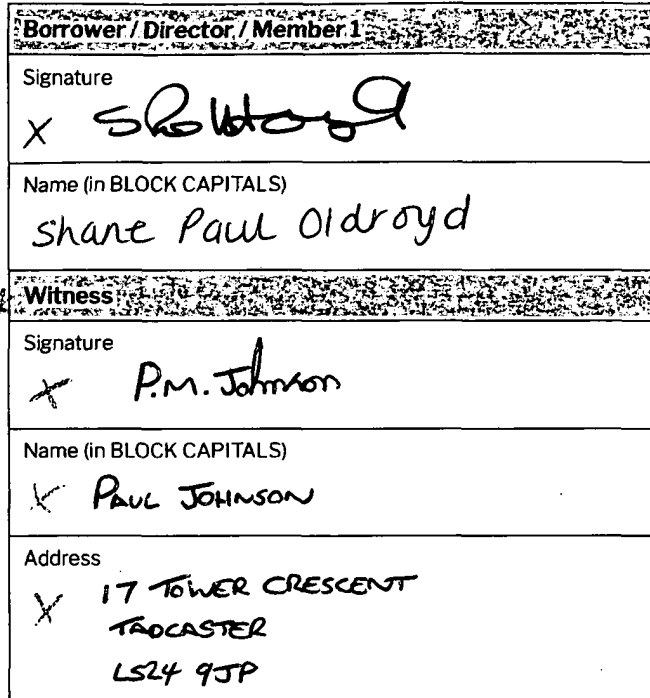 Borrower / Director / Member 1
Signature
X
Name (in BLOCK CAPITALS)
Shane Paul Oldroyd
Witness
Signature
X P.M. Johnson
Name (in BLOCK CAPITALS)
X PAUL JOHNSON
Address
X 17 TOWER CRESCENT
TADCASTER
LS24 9JP